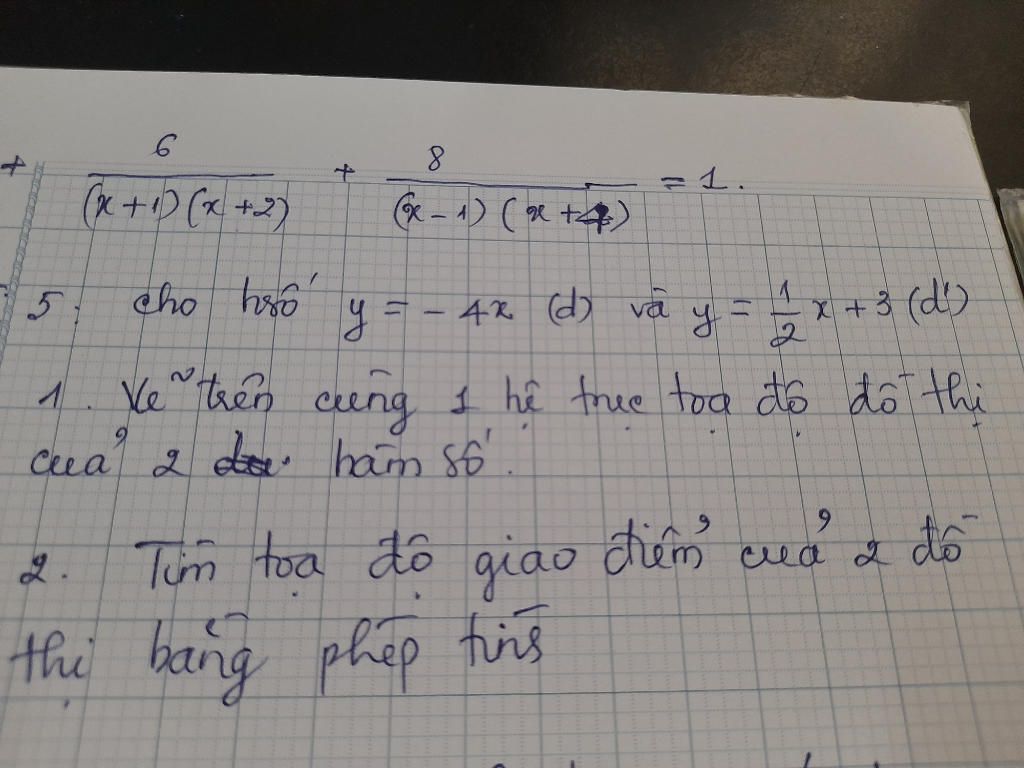 + 6/((x+1)(x+2)) + 8/((x-1)(x+4)) = 1.
5: cho hsố y = - 4x (d) và y = 1/2 x + 3 (d')
1. Vẽ trên cùng 1 hệ trục toạ độ đồ thị
của 2 hàm số.
2. Tìm tọa độ giao điểm của 2 đồ
thị bằng phép tính